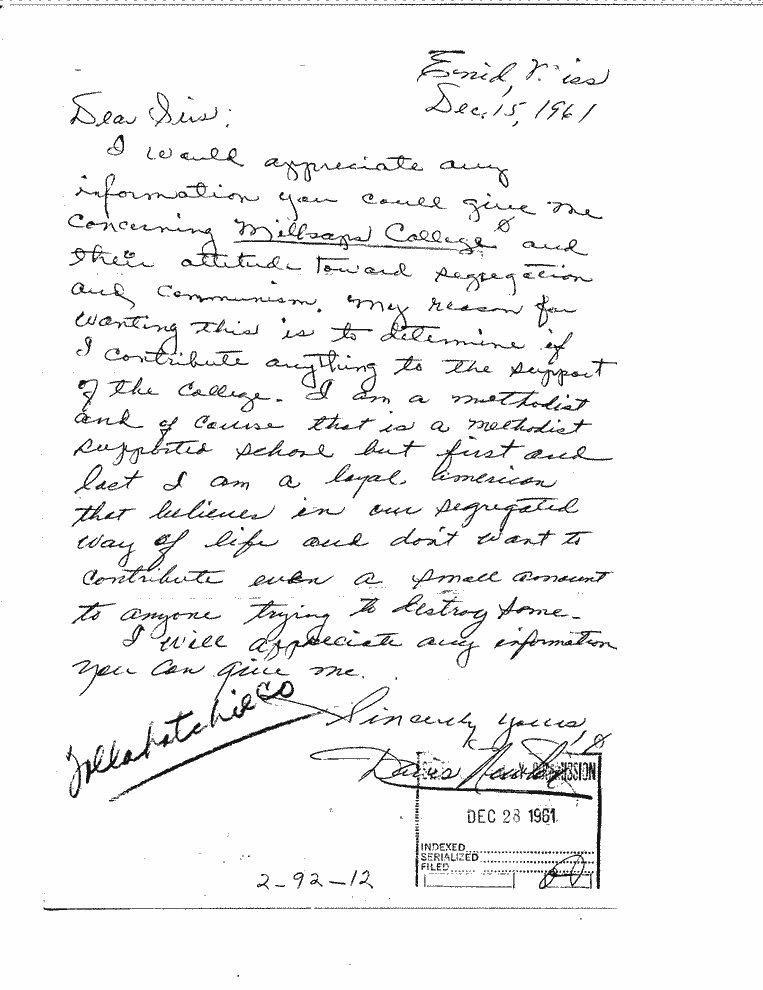 Enid, Miss
Dec. 15, 1961
Dear Sirs:
I would appreciate any
information you could give me
concerning Millsaps College and
their attitude toward segregation
and communism. My reason for
wanting this is to determine if
I contribute anything to the support
of the college. I am a methodist
and of course that is a methodist
supported school but first and
last I am a loyal american
that believes in our segregated
way of life and don't want to
contribute even a small amount
to anyone trying to destroy same.
I will appreciate any information
you can give me.
Sincerely yours,
Tallahatchie Co
Davis
DEC 28 1961
INDEXED
SERIALIZED
FILED
2-92-12